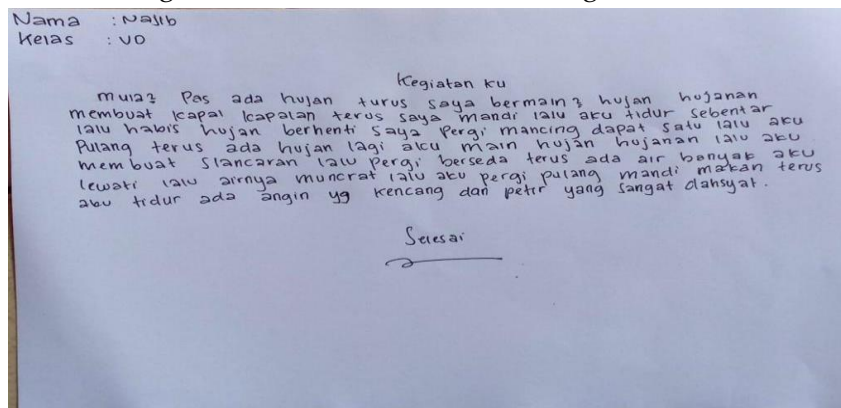 Nama : Najib
Kelas : VD
Kegiatan ku
mula2 Pas ada hujan turus saya bermain2 hujan hujanan
membuat kapal kapalan terus saya mandi lalu aku tidur sebentar
lalu habis hujan berhenti saya pergi mancing dapat satu lalu aku
Pulang terus ada hujan lagi aku main hujan hujanan lalu aku
membuat Slancaran lalu pergi berseda terus ada air banyak aku
lewati lalu airnya muncrat lalu aku pergi pulang mandi makan terus
aku tidur ada angin yg kencang dan petir yang sangat dahsyat.
Selesai